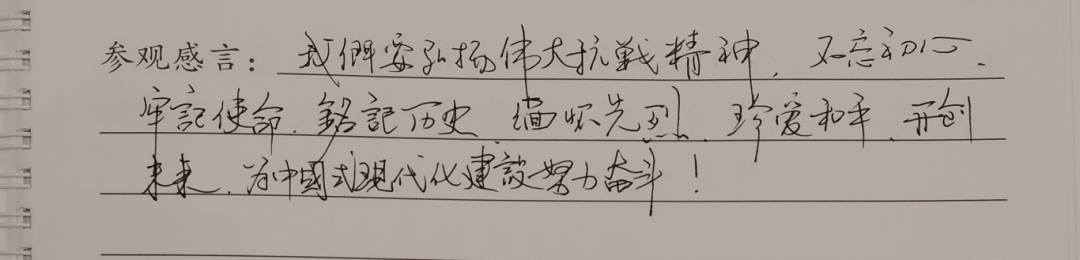 参观感言：我們要弘扬伟大抗戰精神，不忘初心、
牢記使命、銘記历史、缅怀先烈、珍爱和平、开创
未来，为中國式现代化建設努力奋斗！